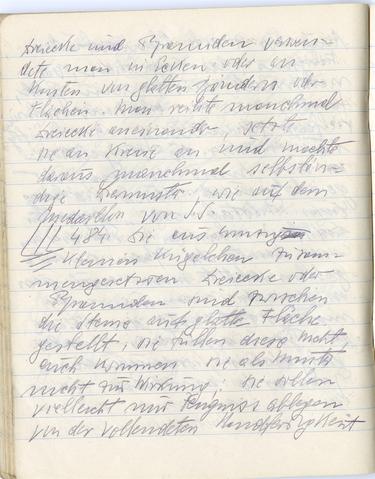 Dreiecke und Pyramiden verwen-
dete man in Ecken oder an
Kanten von glatten Bändern oder
Flächen. Man reihte manchmal
Dreiecke aneinander, setzte
sie an Kreise an und machte
daraus manchmal selbstän-
dige Ziermuster wie auf dem
von
484. Die aus winzigen
kleinen Kügelchen zusam-
mengesetzten Dreiecke oder
Pyramiden sind zwischen
die Sterne auf glatte Fläche
gestellt, sie füllen diese nicht,
auch kommen sie als Muster
nicht zur Wirkung: sie sollen
vielleicht nur Zeugniss ablegen
von der vollendeten Handfertigkeit